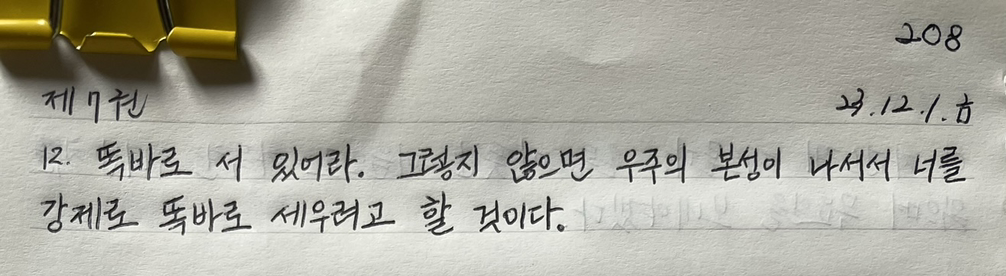 208
제 7권
23.12.1.금
12. 똑바로 서 있어라. 그렇지 않으면 우주의 본성이 나서서 너를
강제로 똑바로 세우려고 할 것이다.